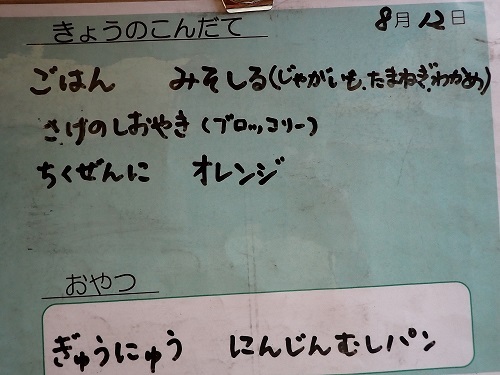 きょうのこんだて 8月12日
ごはん みそしる(じゃがいも、たまねぎ、わかめ)
さけのしおやき(ブロッコリー)
ちくぜんに オレンジ
おやつ
ぎゅうにゅう にんじんむしパン